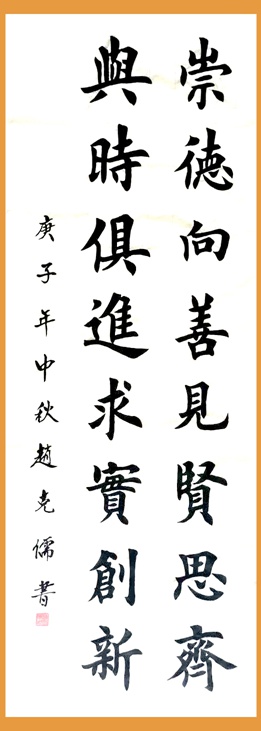 崇德向善見賢思齊
與時俱進求實創新
庚子年中秋趙克儒書